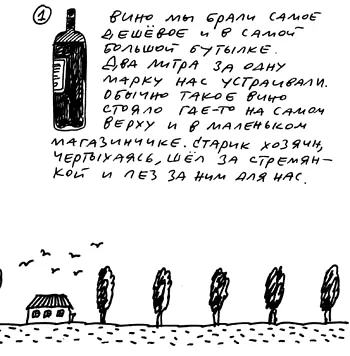 1
ВИНО МЫ БРАЛИ САМОЕ
ДЕШЁВОЕ И В САМОЙ
БОЛЬШОЙ БУТЫЛКЕ.
ДВА ЛИТРА ЗА ОДНУ
МАРКУ НАС УСТРАИВАЛИ.
ОБЫЧНО ТАКОЕ ВИНО
СТОЯЛО ГДЕ-ТО НА САМОМ
ВЕРХУ И В МАЛЕНЬКОМ
МАГАЗИНЧИКЕ. СТАРИК ХОЗЯИН,
ЧЕРТЫХАЯСЬ, ШЁЛ ЗА СТРЕМЯН-
КОЙ И ЛЕЗ ЗА НИМ ДЛЯ НАС.